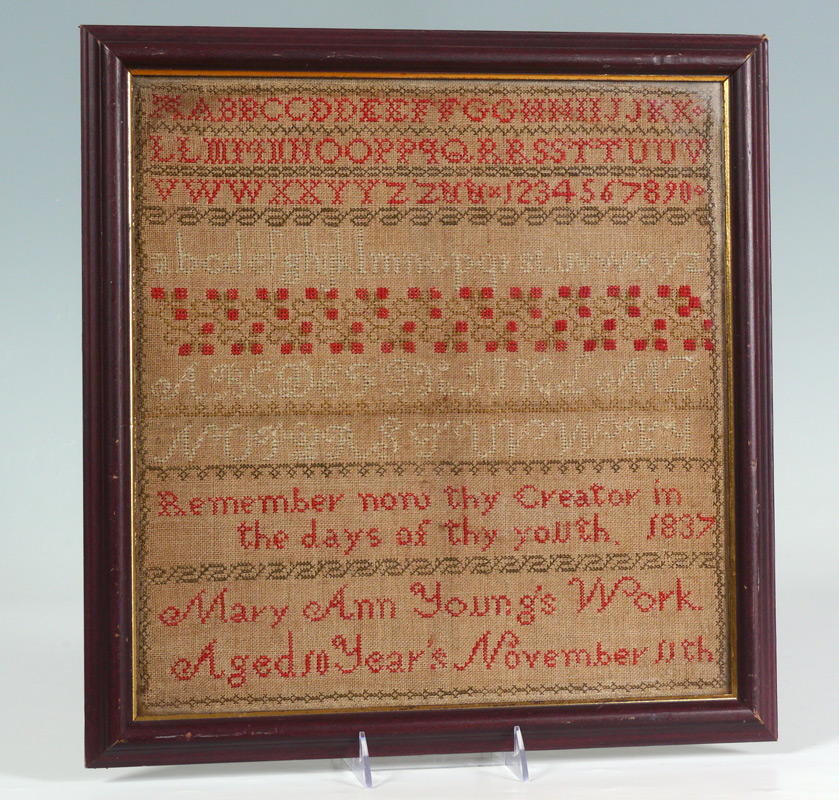 AABBCCDDEEFFGGHHIIJJKK
LLMMNNOOPPQQRRSSTTUUV
VWWXXYYZZ&&1234567890
abcdefghijklmnopqrstuvwxyz
ABCDEFGHIJKLM
NOPQRSTUVWXYZ
Remember now thy Creator in
the days of thy youth. 1837
Mary Ann Young's Work.
Aged 10 Year's November 11th